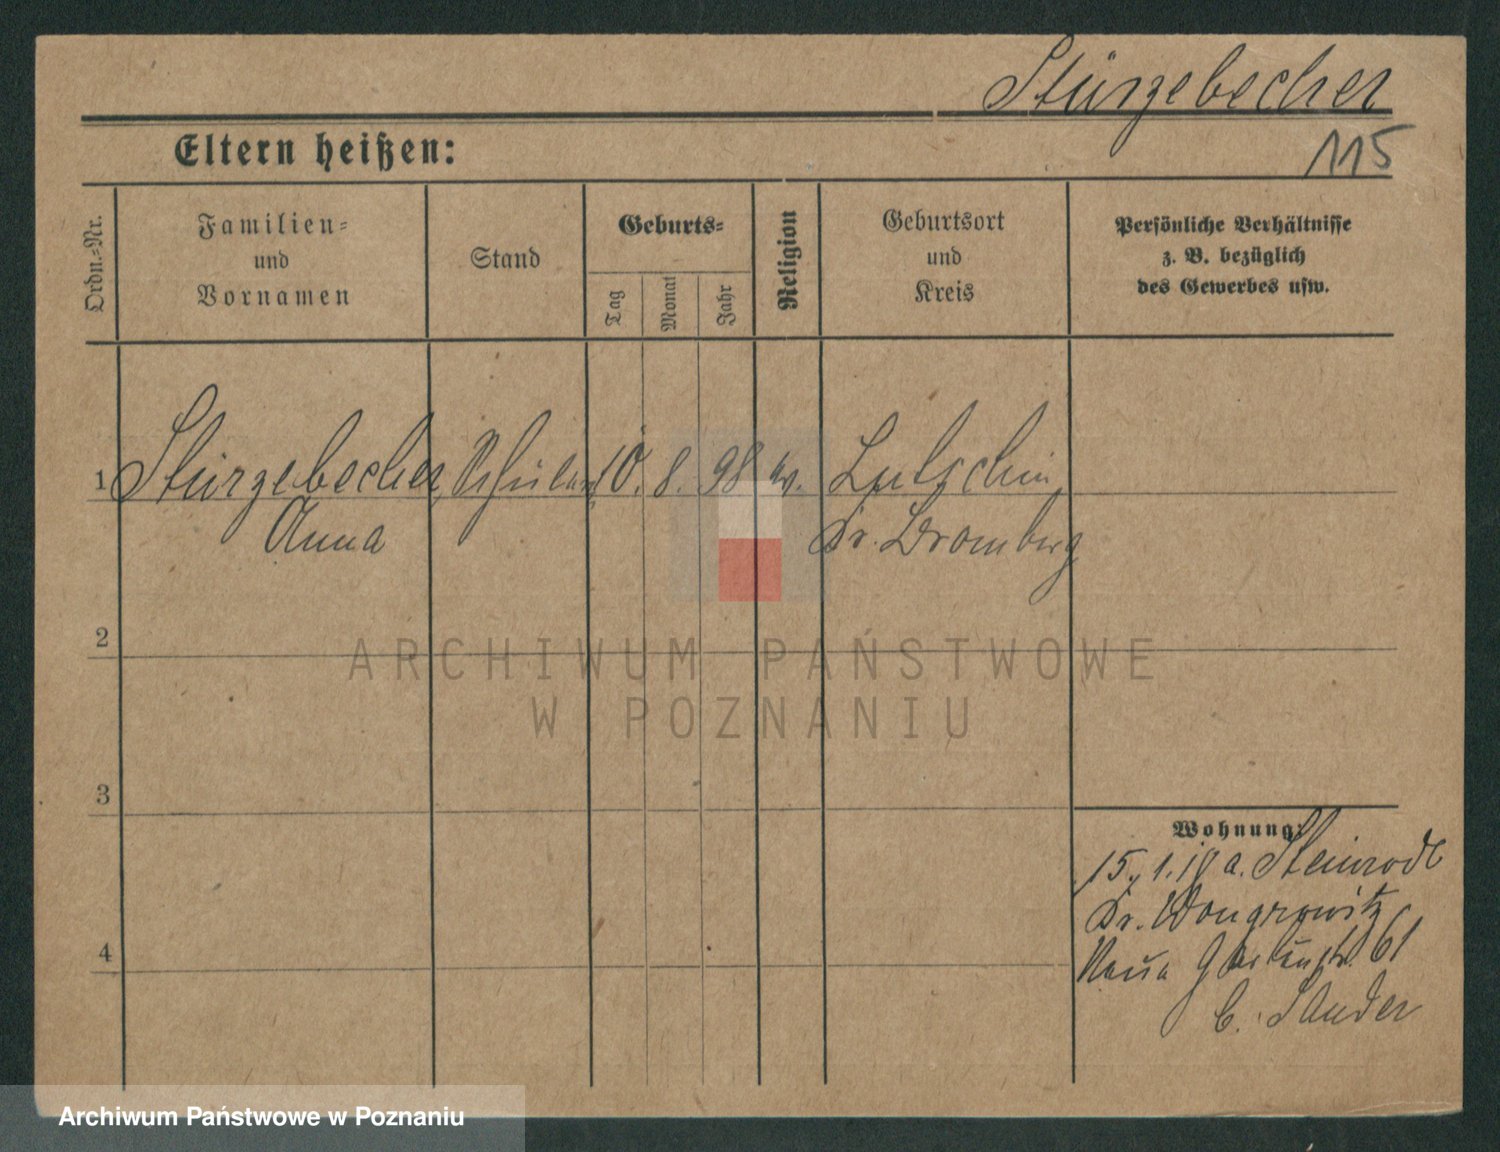 Stürzebecher
Eltern heißen:
115
Ordn.-Nr.
Familien-
und
Vornamen
Stand
Geburts-
Tag
Monat
Jahr
Religion
Geburtsort
und
Kreis
Persönliche Verhältnisse
z. B. bezüglich
des Gewerbes usw.
1 Stürzebecher, 10. 8. 98 ev.
Anna Kr. Bromberg
2
ARCHIWUM PAŃSTWOWE
W POZNANIU
3
Wohnung:
15. 1. a.
Kr. Wongrowitz
Neue Gartenstr. 61
b. Sander
4
Archiwum Państwowe w Poznaniu